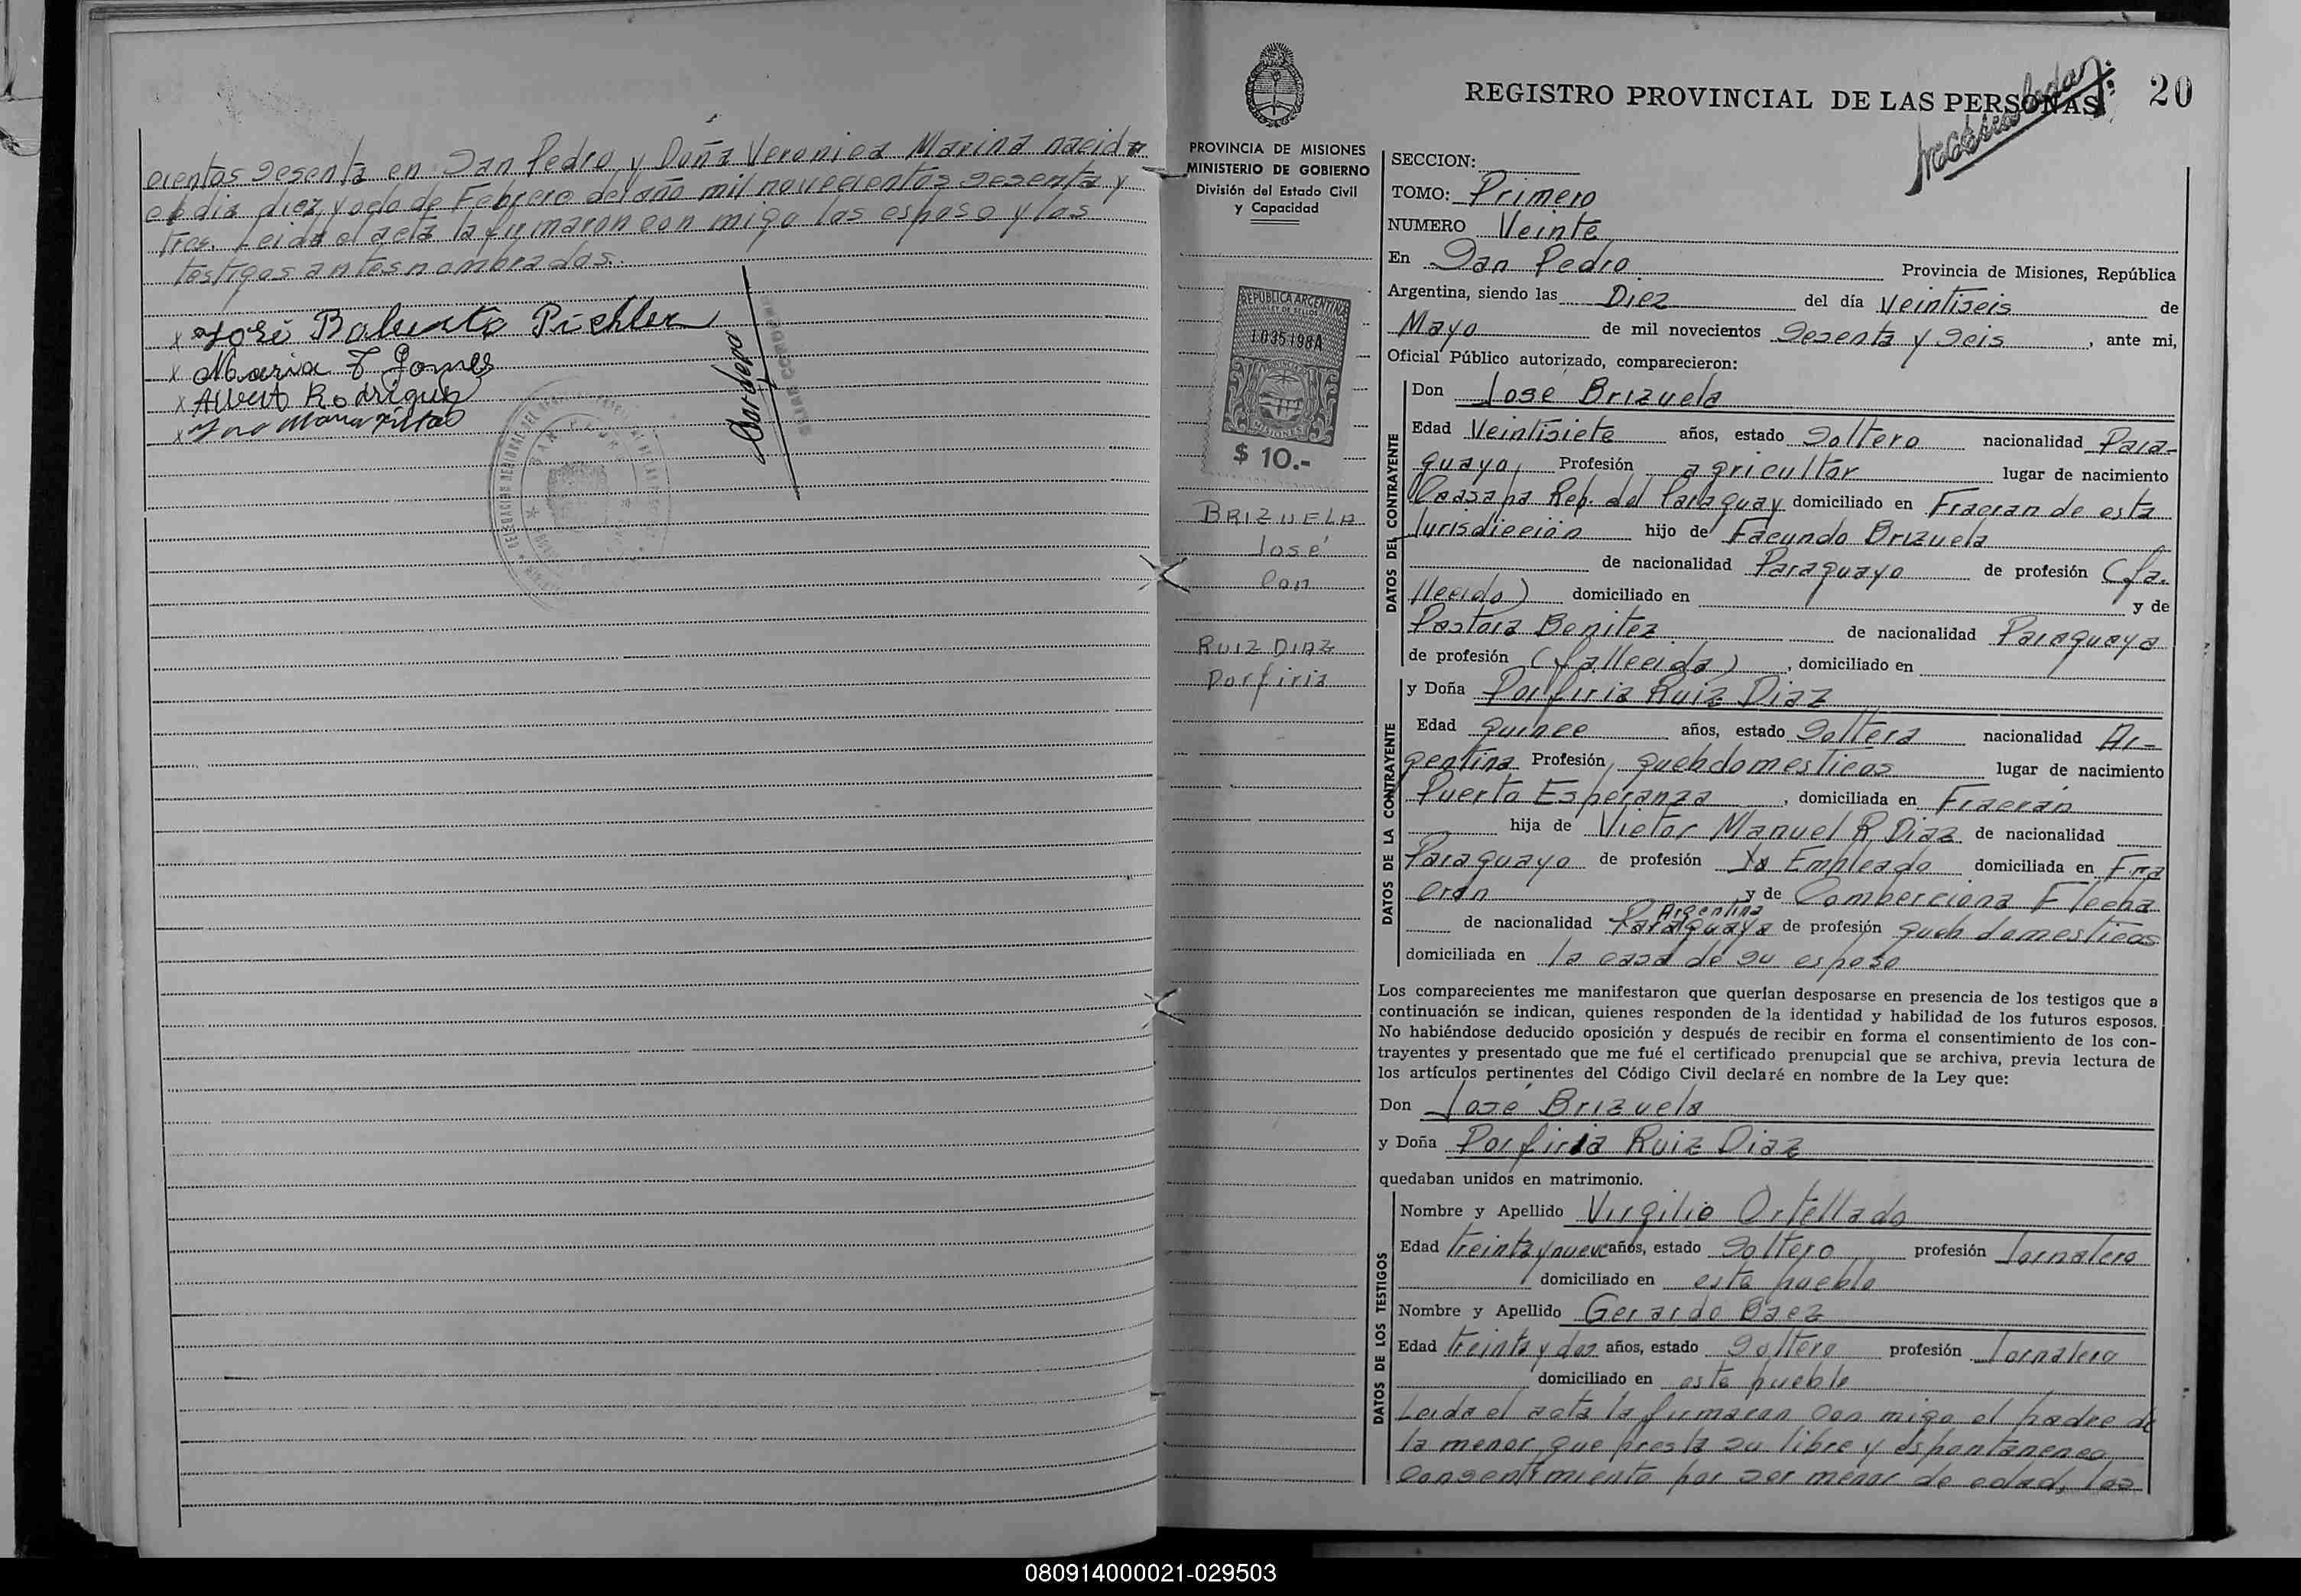 cientos sesenta en San Pedro y Doña Veronica Marina nacida
el dia diez y ocho de Febrero del año mil novecientos sesenta y
tres. Leida el acta la firmaron con migo los esposo y los
testigos antes nombrados.
x José Roberto Pichler
x Maria F Gomes
x Albert Rodriguez
x
Cardero
SAN PEDRO
PROVINCIA DE MISIONES
MINISTERIO DE GOBIERNO
División del Estado Civil
y Capacidad
REPUBLICA ARGENTINA
LEY DE SELLOS
1035198A
MISIONES
$ 10.-
BRIZUELA
José
Con
RUIZ DIAZ
Porfiria
REGISTRO PROVINCIAL DE LAS PERSONAS
20
SECCION:
TOMO: Primero
NUMERO Veinte
En San Pedro Provincia de Misiones, República
Argentina, siendo las Diez del día Veintiseis de
Mayo de mil novecientos Sesenta y Seis, ante mi,
Oficial Público autorizado, comparecieron:
DATOS DEL CONTRAYENTE
Don José Brizuela
Edad Veintisiete años, estado Soltero nacionalidad Para-
guayo, Profesión agricultor lugar de nacimiento
Caasapa Rep. del Paraguay domiciliado en Fracran de esta
Jurisdicción hijo de Facundo Brizuela
de nacionalidad Paraguayo de profesión (fa-
llecido) domiciliado en y de
Pastora Benitez de nacionalidad Paraguaya
de profesión (fallecida), domiciliado en
DATOS DE LA CONTRAYENTE
y Doña Porfiria Ruiz Diaz
Edad quince años, estado Soltera nacionalidad Ar-
gentina Profesión quehdomesticos lugar de nacimiento
Puerto Esperanza, domiciliada en Fracrán
hija de Victor Manuel R Diaz de nacionalidad
Paraguayo de profesión Empleado domiciliada en Fra
cran y de Comberciona Flecha
Argentina
de nacionalidad Paraguaya de profesión queh domesticos
domiciliada en la casa de su esposo
Los comparecientes me manifestaron que querían desposarse en presencia de los testigos que a
continuación se indican, quienes responden de la identidad y habilidad de los futuros esposos.
No habiéndose deducido oposición y después de recibir en forma el consentimiento de los con-
trayentes y presentado que me fué el certificado prenupcial que se archiva, previa lectura de
los artículos pertinentes del Código Civil declaré en nombre de la Ley que:
Don José Brizuela
y Doña Porfiria Ruiz Diaz
quedaban unidos en matrimonio.
DATOS DE LOS TESTIGOS
Nombre y Apellido Virgilio Ortellado
Edad treinta y nueve años, estado Soltero profesión Jornalero
domiciliado en este pueblo
Nombre y Apellido Gerardo Baez
Edad treinta y dos años, estado Soltero profesión Jornalero
domiciliado en este pueblo
Leida el acta la firmaron con migo el padre de
la menor que presta su libre y espontaneneo
Consentimiento por ser menor de edad, los
080914000021-029503